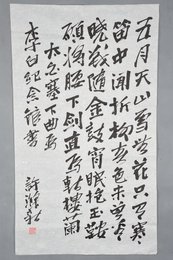 五月天山雪無花只有寒
笛中聞折柳春色未曾看
曉戰隨金鼓宵眠抱玉鞍
願將腰下劍直為斬樓蘭
太白塞下曲為
李白紀念館書